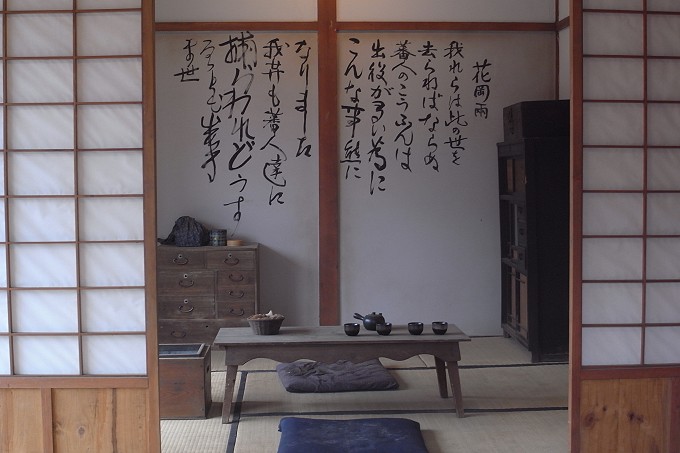 花岡兩
我れらは此の世を
去らねばならぬ
蕃人のこうふんは
出役が多い為に
こんな事件に
なりました
我等も蕃人達に
捕らわれどうす
ることも出来